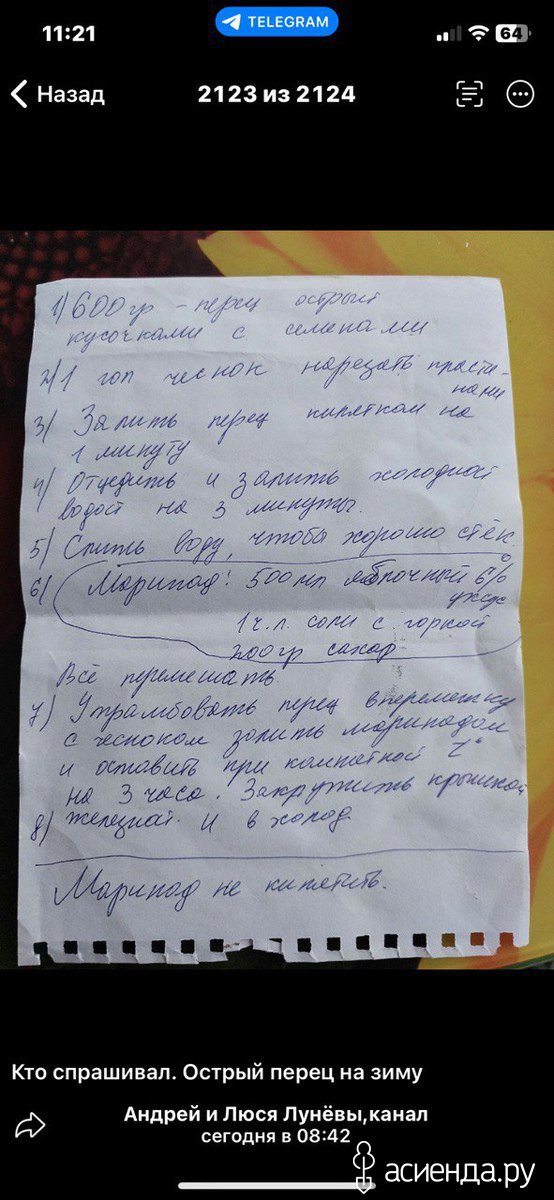 11:21
TELEGRAM
64
Назад
2123 из 2124
1) 600 гр - перец острый
кусочками с семенами
2) 1 гол чеснок нарезать пласти-
нами
3) Залить перец кипятком на
1 минуту
4) Отцедить и залить холодной
водой на 3 минуты.
5) Слить воду, чтобы хорошо стёк
6) Маринад: 500 мл яблочный 6%
уксус
1 ч.л. соли с горкой
200 гр сахар
Всё перемешать.
7) Утрамбовать перец вперемешку
с чесноком залить маринадом
и оставить при комнатной t°
на 3 часа. Закрутить крышкой
8) железной. и в холод.
Маринад не кипятить.
Кто спрашивал. Острый перец на зиму
Андрей и Люся Лунёвы,канал
сегодня в 08:42
асиенда.ру